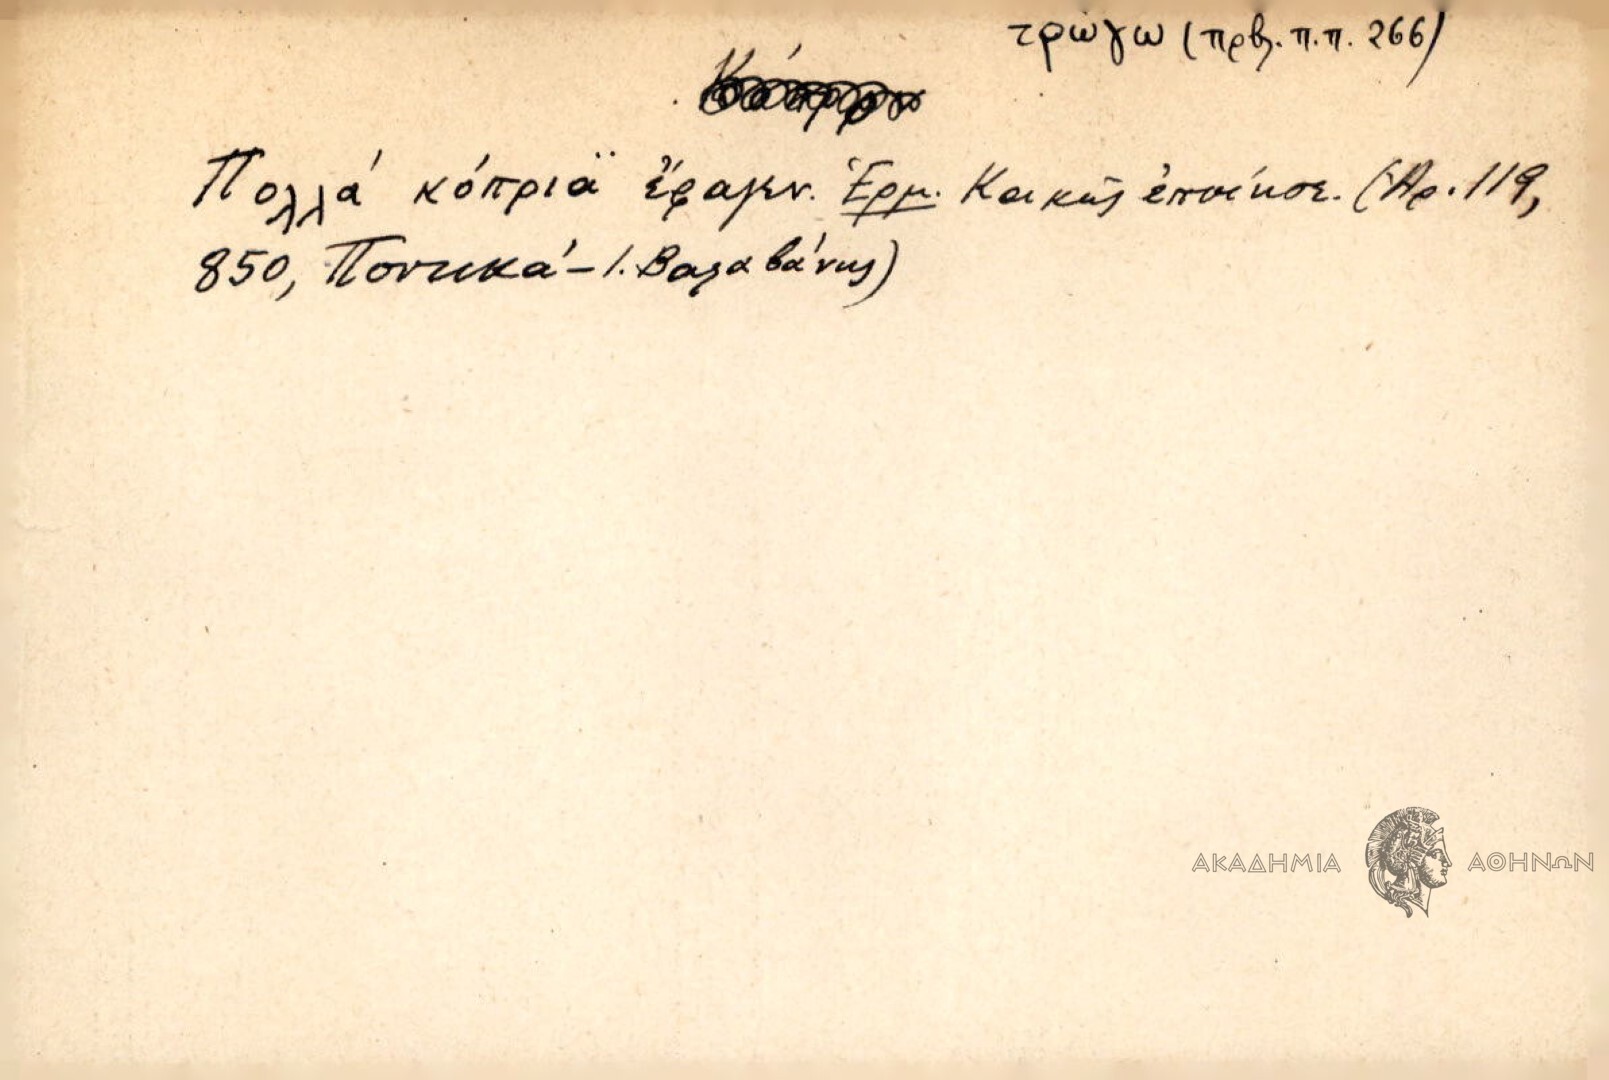 τρώγω (πρβ. π.π. 266)
Πολλά κόπριᾰ ἔφαγεν. Ἑρμ. Κακῶς ἐποίησε. (Ἀρ. 119,
850, Ποντικά – Ι. Βαλαβάνης)
ΑΚΑΔΗΜΙΑ ΑΘΗΝΩΝ